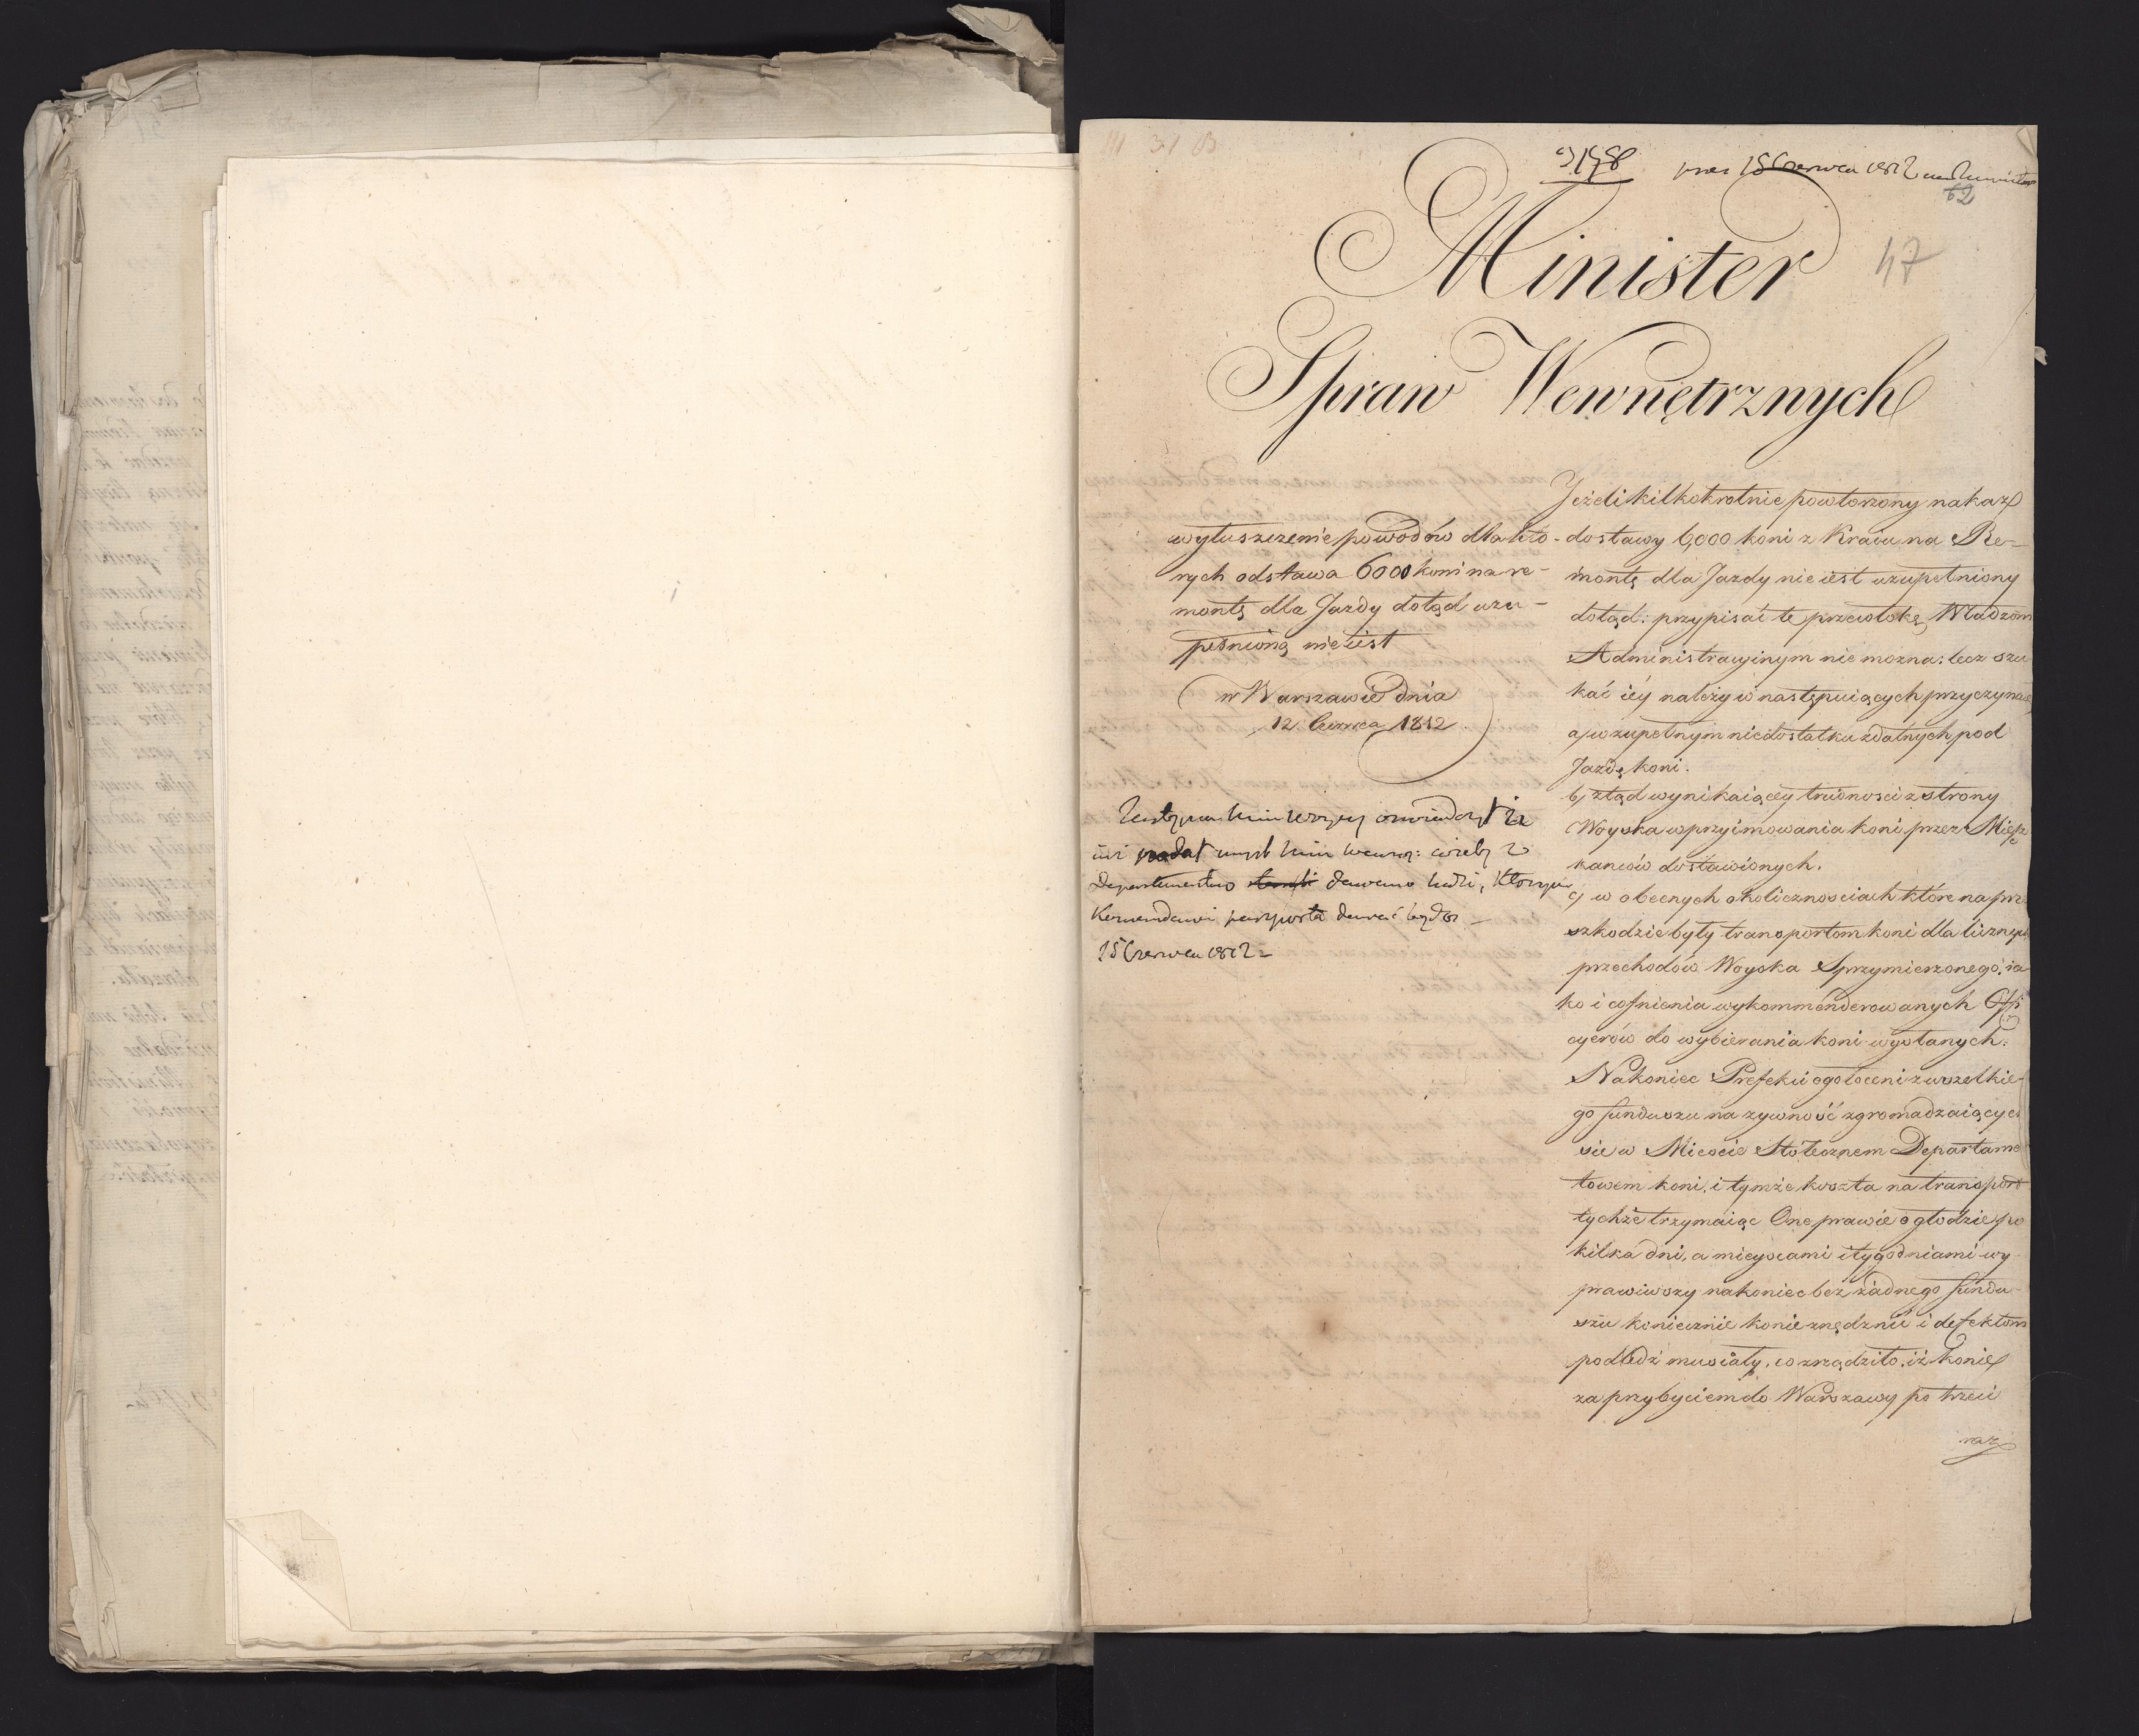 III 31 B
3178
pres 15 Czerwca 1812
62
47
Minister
Spraw Wewnętrznych
wyłuszczenie powodów dla któ-
rych odstawa 6000 koni na re-
montę dla Jazdy dotąd uzu-
pełnioną nie iest
w Warszawie dnia
12 Czerwca 1812
już podał
Departamentów dawano ludzi, którym
Kommendanci paszporta dawać będą
15 Czerwca 1812
Jeżeli kilkokrotnie powtorzony nakaz
dostawy 6,000 koni z Kraiu na Re-
montę dla Jazdy nie iest uzupełniony
dotąd: przypisać te przewłokę Władzom
Administracyinym nie mozna: lecz szu
kać iéy należy w następuiących przyczynach
a, w zupełnym niedostatku zdatnych pod
Jazdę koni.
b, ztąd wynikaiącéy trudnosci z strony
Woyska w przyimowania koni przez Miesz
kancow dostawionych.
c, w obecnych okolicznosciach które na prze
szkodzie były transportom koni dla licznych
przechodów Woyska Sprzymierzonego, ia
ko i cofnienia wykommenderowanych Offi
cyerów do wybierania koni wysłanych.
Nakoniec Prefekci ogołoceni z wszelkie-
go funduszu na zywność zgromadzaiących
sie w Miescie Stołecznem Departamen
towem koni, i tymże koszta na transport
tychże trzymaiąc One prawie o głodzie po
kilka dni, a mieyscami i tygodniami wy
prawiwszy nakoniec bez żadnego fundu-
szu koniecznie konie znędznić i defektom
podledz musiały, co zrządziło, iż konie
za przybyciem do Warszawy po trzeci
raz